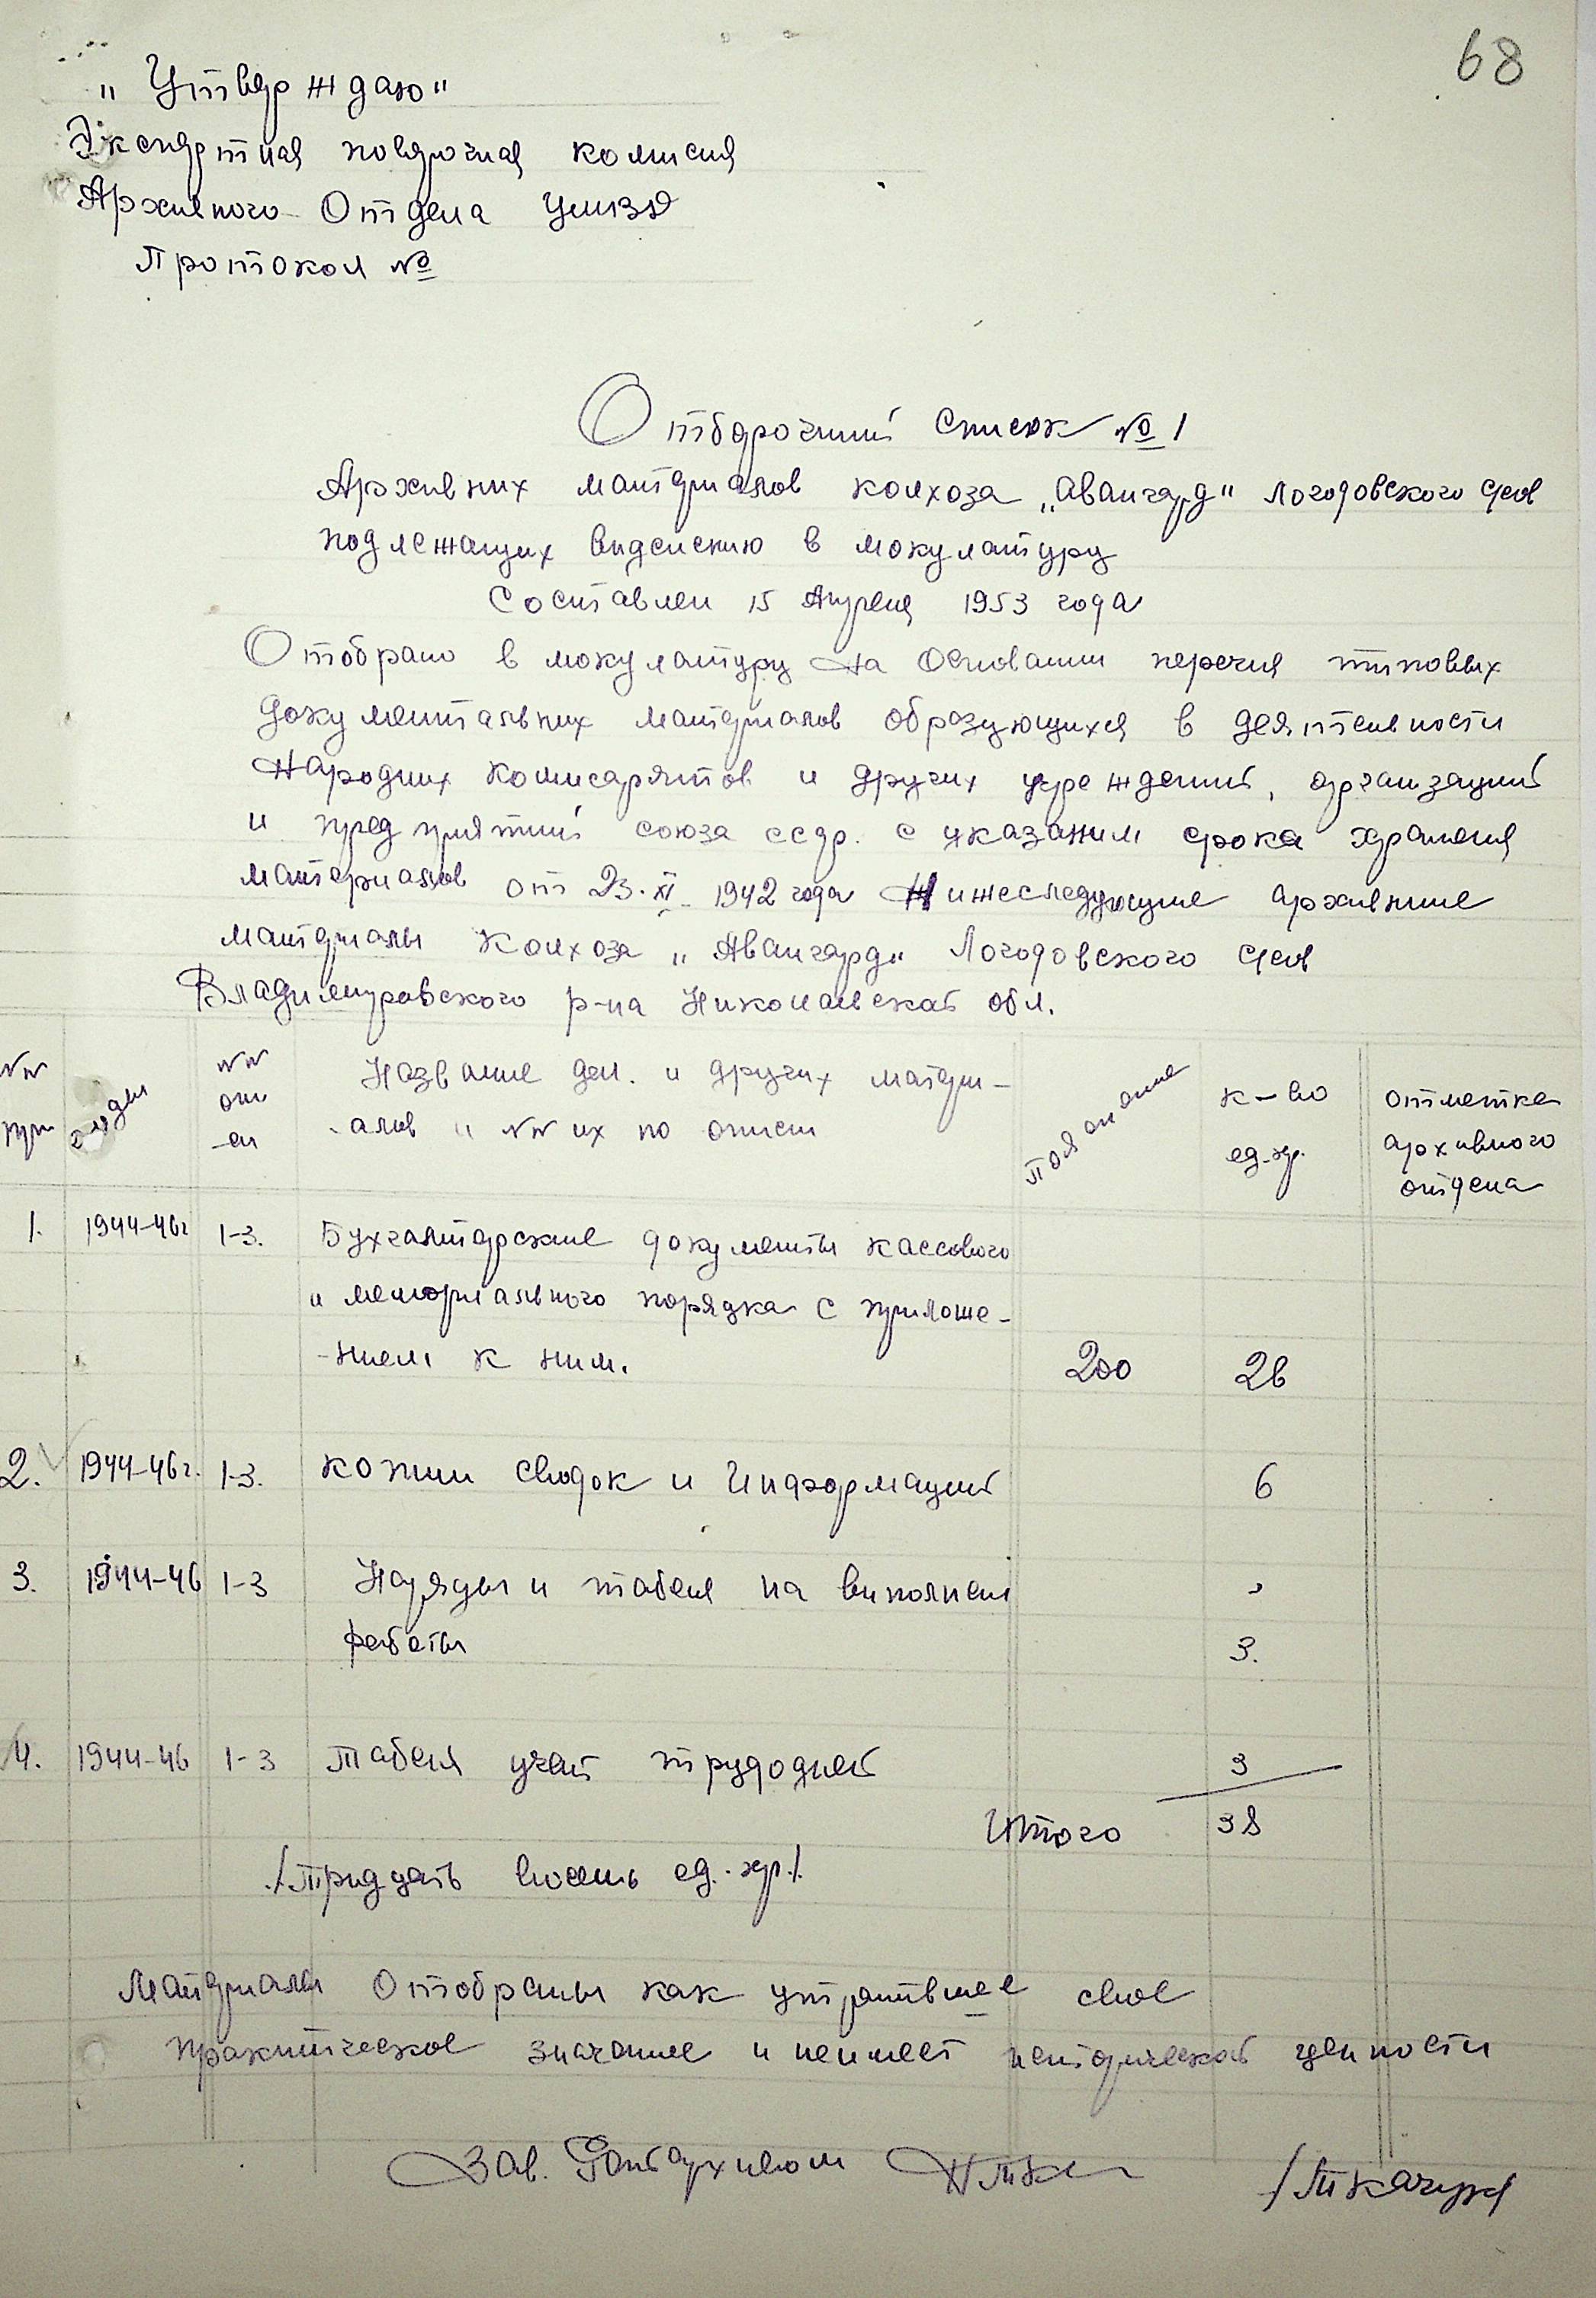 68
„Утверждаю"
Экспертная поверочная комисия
Архивного Отдела УМВД
Протокол №
Отборочний список № 1
Архивних материалов колхоза „Авангард"
подлежащих видению в мокулатуру
Составлен 15 Апреля 1953 года
Отобрано в мокулатуру На Основании перечня типовых
документальних материалов образующихся в деятельности
Народних комисарятов и других учреждений, организаций
и предприятий союза сср. с указаним срока храненя
материалов от 23.XI- 1942 года Нижеследующие архивние
материалы колхоза „Авангард"
Владимировского р-на Николаевской обл.
№№ пп
годы
№№ опи-си
Название дел. и других матери-
-алов и №№ их по описи
Пояснение
к-во ед.хр.
отметка архивного отдела
1. 1944-46г 1-3. Бухгалтерские документы кассового
и мемориального порядка с приложе-
-нием к ним. 200 26
2. 1944-46г. 1-3. копии сводок и Информаций 6
3. 1944-46 1-3 Наряды и табеля на виполнен
работы 3.
4. 1944-46 1-3 Табеля учет трудодней 3
Итого 38
/Тридцать восемь ед. хр./
Материалы Отобраны как утратившее свое
практическое значение и неимеет исторической ценности
Зав. /Ткачук/